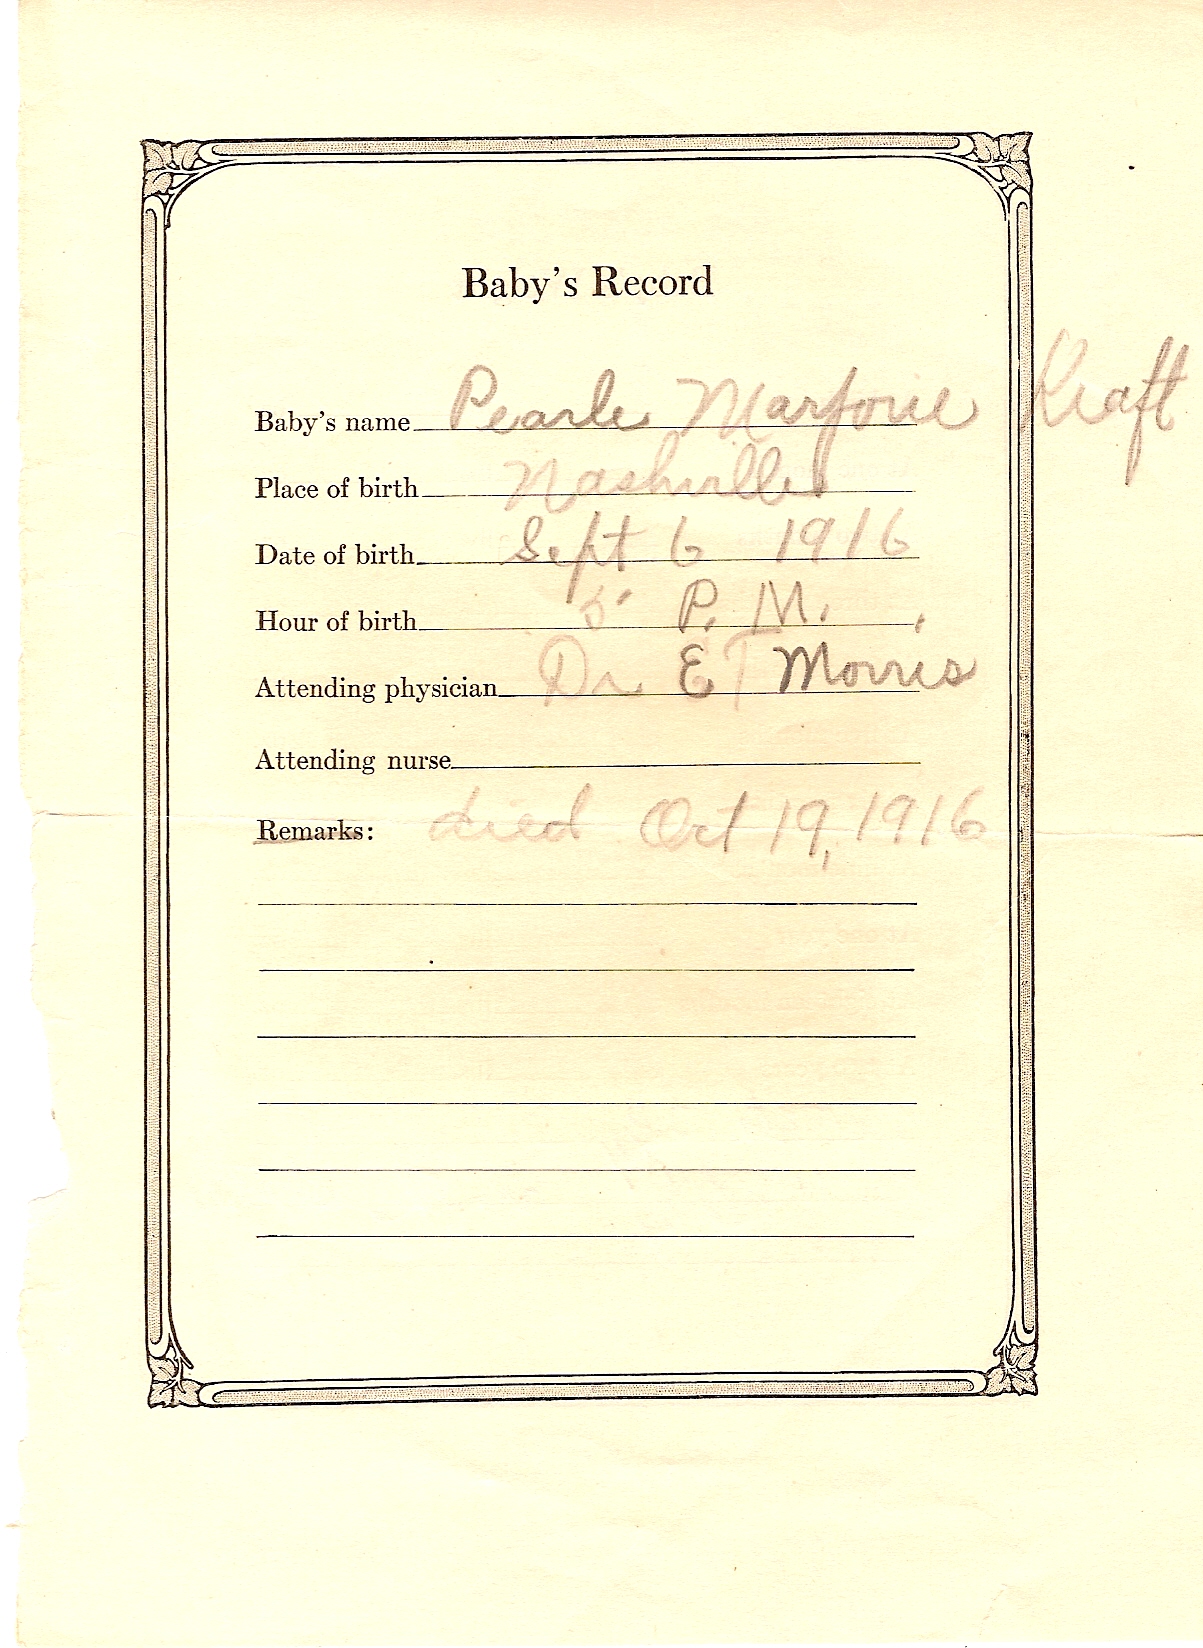 Baby's Record
Baby's name Pearle Marjorie Kraft
Place of birth Nashville
Date of birth Sept 6 1916
Hour of birth 5 P. M.
Attending physician Dr E T Morris
Attending nurse
Remarks: died Oct 19, 1916